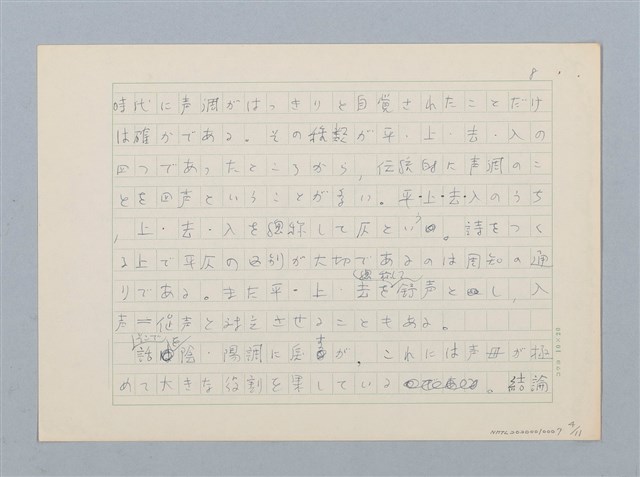 8
時代に声調がはっきりと自覚されたことだけ
は確かである。その種類が平・上・去・入の
四つであったところから,伝統的に声調のこ
とを四声ということが多い。平・上・去・入のうち
,上・去・入を総称して仄という。詩をつく
る上で平仄の区別が大切であるのは周知の通
りである。また平・上・去を総称して舒声とし,入
声=促声と対立させることもある。
陰・陽調に戻るが,これには声母が極
めて大きな役割を果している。結論
NMTL20000010007 4/11